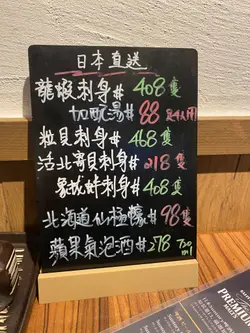 日本直送
龍蝦刺身# 408隻
加配湯# 88 足4人用
粒貝刺身# 468隻
活北寄貝刺身# 218隻
象拔蚌刺身# 468隻
北海道仙極蠔# 98隻
蘋果氣泡酒# 278 750ml
PREMIUM